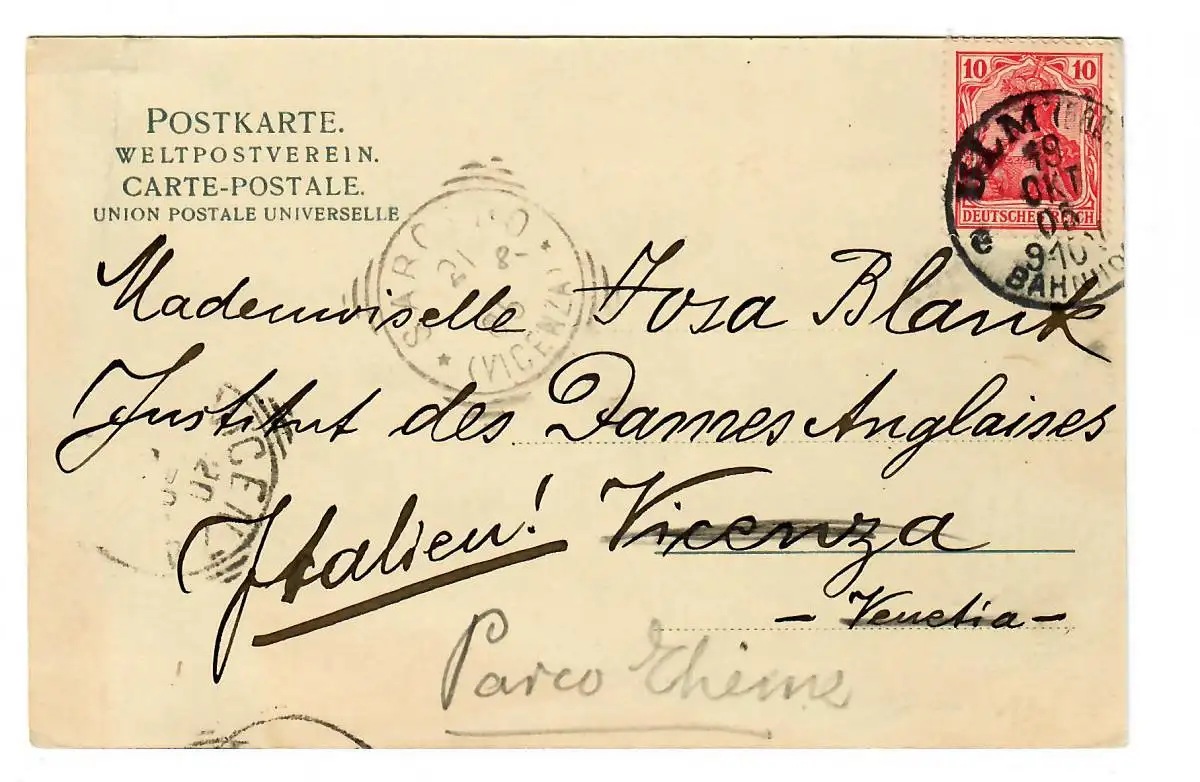 POSTKARTE.
WELTPOSTVEREIN.
CARTE-POSTALE.
UNION POSTALE UNIVERSELLE
10 10
DEUTSCHES REICH
ULM
19
OKT
9-10
e
BAHNHOF
21
8-
(VICENZA)
Mademoiselle Josa Blank
Institut des Dames Anglaises
Italien! Vicenza
- Venetia -
Parco